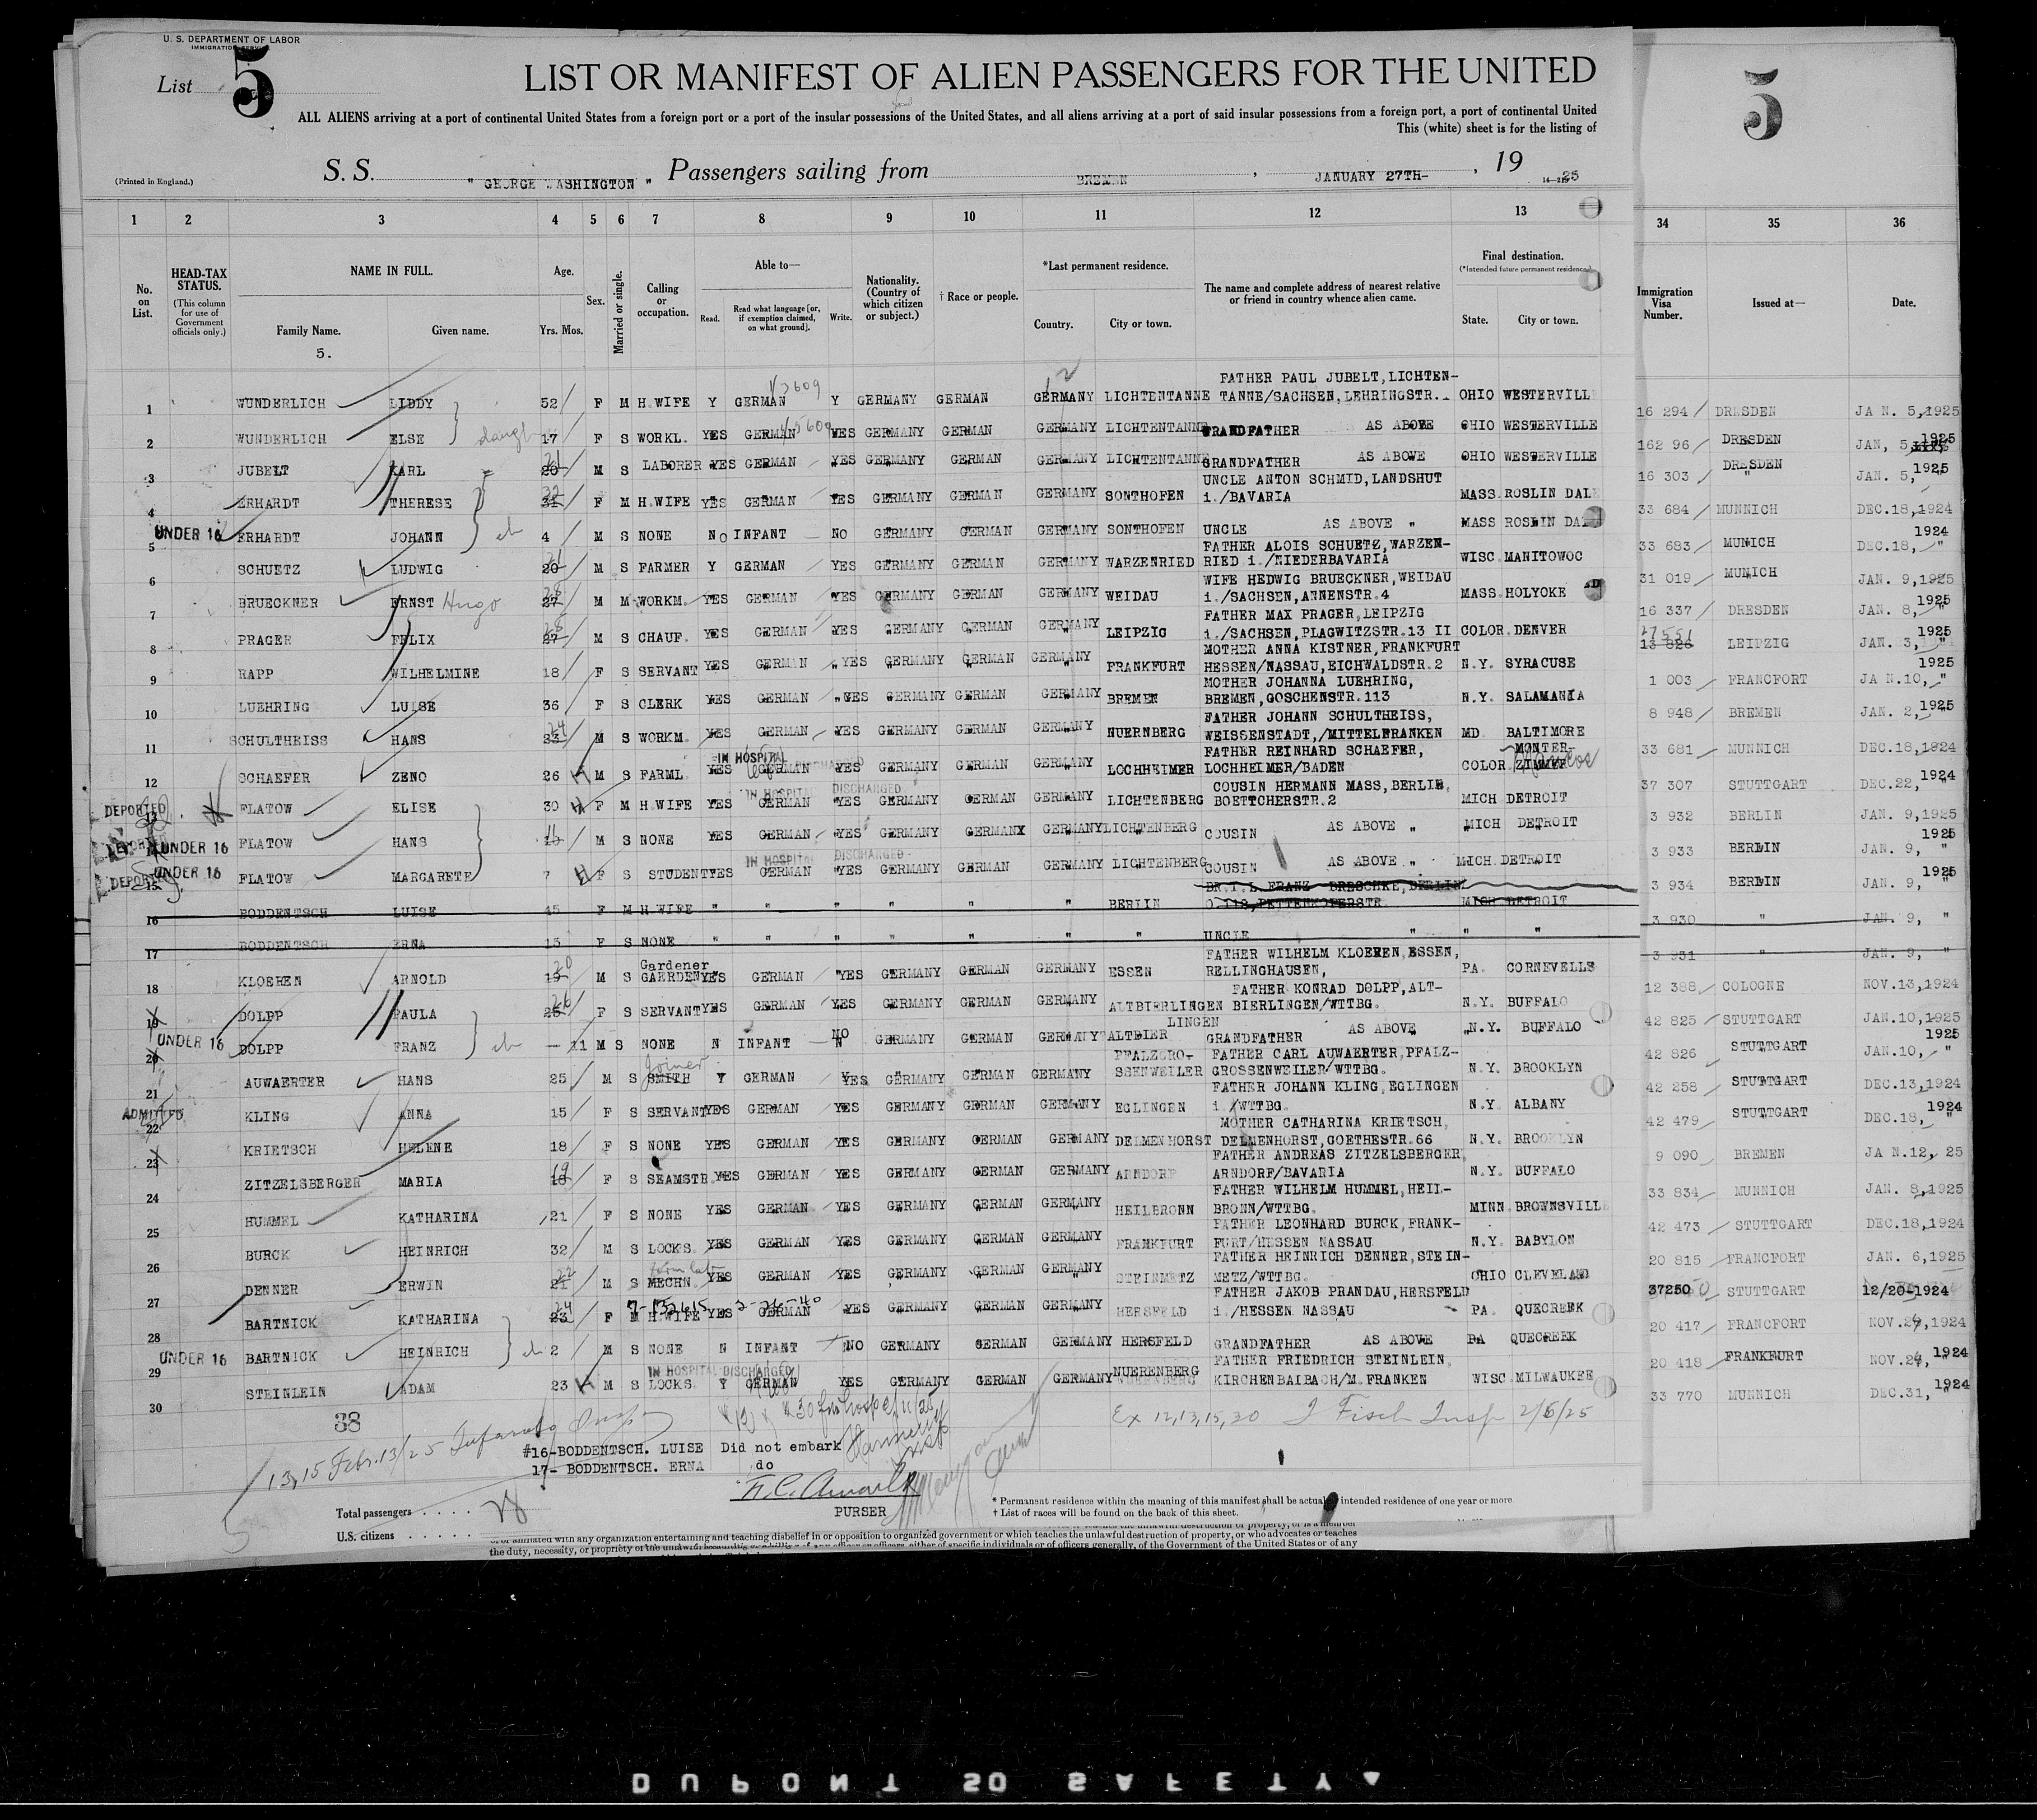 U. S. DEPARTMENT OF LABOR
IMMIGRATION SERVICE
List 5
LIST OR MANIFEST OF ALIEN PASSENGERS FOR THE UNITED
5
ALL ALIENS arriving at a port of continental United States from a foreign port or a port of the insular possessions of the United States, and all aliens arriving at a port of said insular possessions from a foreign port, a port of continental United
This (white) sheet is for the listing of
(Printed in England.)
S. S. " GEORGE WASHINGTON " Passengers sailing from BREMEN, JANUARY 27TH-, 19 25
1 2 3 4 5 6 7 8 9 10 11 12 13 34 35 36
No. on List.
HEAD-TAX STATUS. (This column for use of Government officials only.)
NAME IN FULL. Family Name. Given name.
5.
Age. Yrs. Mos.
Sex.
Married or single.
Calling or occupation.
Able to— Read. Read what language [or, if exemption claimed, on what ground]. Write.
Nationality. (Country of which citizen or subject.)
† Race or people.
*Last permanent residence. Country. City or town.
The name and complete address of nearest relative or friend in country whence alien came.
Final destination. (*Intended future permanent residence.) State. City or town.
Immigration Visa Number.
Issued at—
Date.
1 WUNDERLICH LIDDY 52 F M H.WIFE Y GERMAN Y GERMANY GERMAN GERMANY LICHTENTANNE FATHER PAUL JUBELT, LICHTEN- TANNE/SACHSEN, LEHRINGSTR. OHIO WESTERVILL 16 294 DRESDEN JAN. 5, 1925
2 WUNDERLICH ELSE 17 F S WORKL. YES GERMAN YES GERMANY GERMAN GERMANY LICHTENTANNE GRANDFATHER AS ABOVE OHIO WESTERVILLE 162 96 DRESDEN JAN, 5, 1925
3 JUBELT KARL 20 21 M S LABORER YES GERMAN YES GERMANY GERMAN GERMANY LICHTENTANNE GRANDFATHER AS ABOVE OHIO WESTERVILLE 16 303 DRESDEN JAN. 5, 1925
4 ERHARDT THERESE 31 32 F M H.WIFE YES GERMAN YES GERMANY GERMAN GERMANY SONTHOFEN UNCLE ANTON SCHMID, LANDSHUT i./BAVARIA MASS ROSLIN DALE 33 684 MUNNICH DEC.18, 1924
UNDER 16 5 ERHARDT JOHANN 4 M S NONE NO INFANT NO GERMANY GERMAN GERMANY SONTHOFEN UNCLE AS ABOVE " MASS ROSLIN DA 33 683 MUNICH DEC.18, 1924
6 SCHUETZ LUDWIG 20 21 M S FARMER Y GERMAN YES GERMANY GERMAN GERMANY WARZENRIED FATHER ALOIS SCHUETZ, WARZEN- RIED i./NIEDERBAVARIA WISC. MANITOWOC 31 019 MUNICH JAN. 9, 1925
7 BRUECKNER ERNST Hugo 27 28 M M WORKM. YES GERMAN YES GERMANY GERMAN GERMANY WEIDAU WIFE HEDWIG BRUECKNER, WEIDAU i./SACHSEN, ANNENSTR.4 MASS. HOLYOKE 16 337 DRESDEN JAN. 8, 1925
8 PRAGER FELIX 27 28 M S CHAUF. YES GERMAN YES GERMANY GERMAN GERMANY LEIPZIG FATHER MAX PRAGER, LEIPZIG i./SACHSEN, PLAGWITZSTR.13 II COLOR. DENVER 13 826 27551 LEIPZIG JAN. 3, 1925
9 RAPP WILHELMINE 18 F S SERVANT YES GERMAN YES GERMANY GERMAN GERMANY FRANKFURT MOTHER ANNA KISTNER, FRANKFURT HESSEN/NASSAU, EICHWALDSTR.2 N.Y. SYRACUSE 1 003 FRANCFORT JAN.10, 1925
10 LUEHRING LUISE 36 F S CLERK YES GERMAN YES GERMANY GERMAN GERMANY BREMEN MOTHER JOHANNA LUEHRING, BREMEN, GOSCHENSTR.113 N.Y. SALAMANIA 8 948 BREMEN JAN. 2, 1925
11 SCHULTHEISS HANS 23 24 M S WORKM. YES GERMAN YES GERMANY GERMAN GERMANY NUERNBERG FATHER JOHANN SCHULTHEISS, WEISSENSTADT,/MITTELFRANKEN MD. BALTIMORE 33 681 MUNNICH DEC.18, 1924
12 SCHAEFER ZENO 26 M S FARML. YES GERMAN YES GERMANY GERMAN GERMANY LOCHHEIMER FATHER REINHARD SCHAEFER, LOCHHEIMER/BADEN COLOR. MONTER- ZIMMER 37 307 STUTTGART DEC.22, 1924
IN HOSPITAL DISCHARGED
DEPORTED 13 FLATOW ELISE 30 F M H.WIFE YES GERMAN YES GERMANY GERMAN GERMANY LICHTENBERG COUSIN HERMANN MASS, BERLIN, BOETTCHERSTR.2 MICH DETROIT 3 932 BERLIN JAN. 9, 1925
IN HOSPITAL DISCHARGED
UNDER 16 FLATOW HANS 11 M S NONE YES GERMAN YES GERMANY GERMAN GERMANY LICHTENBERG COUSIN AS ABOVE " MICH DETROIT 3 933 BERLIN JAN. 9, 1925
IN HOSPITAL DISCHARGED
DEPORTED UNDER 16 15 FLATOW MARGARETE 7 F S STUDENT YES GERMAN YES GERMANY GERMAN GERMANY LICHTENBERG COUSIN AS ABOVE " MICH. DETROIT 3 934 BERLIN JAN. 9, 1925
16 BODDENTSCH LUISE 45 F M H.WIFE " " " " " " BERLIN FRANZ DRESCHKE, BERLIN O.112, PETTENKOFERSTR. MICH DETROIT 3 930 " JAN. 9, "
17 BODDENTSCH ERNA 13 F S NONE " " " " " " " UNCLE " " " 3 931 " JAN. 9, "
18 KLOEREN ARNOLD 19 20 M S Gardener GAERDEN YES GERMAN YES GERMANY GERMAN GERMANY ESSEN FATHER WILHELM KLOEREN, ESSEN, RELLINGHAUSEN, PA. CORNEVELLS 12 388 COLOGNE NOV.13, 1924
19 DOLPP PAULA 25 26 F S SERVANT YES GERMAN YES GERMANY GERMAN GERMANY ALTBIERLINGEN FATHER KONRAD DOLPP, ALT- BIERLINGEN/WTTBG. N.Y. BUFFALO 42 825 STUTTGART JAN.10, 1925
UNDER 16 20 DOLPP FRANZ — 11 M S NONE N INFANT NO N GERMANY GERMAN GERMANY ALTBIER LINGEN GRANDFATHER AS ABOVE N.Y. BUFFALO 42 826 STUTTGART JAN.10, 1925
21 AUWAERTER HANS 25 M S Joiner SMITH Y GERMAN YES GERMANY GERMAN GERMANY PFALZGRO- SSENWEILER FATHER CARL AUWAERTER, PFALZ- GROSSENWEILER/WTTBG. N.Y. BROOKLYN 42 258 STUTTGART DEC.13, 1924
ADMITTED 22 KLING ANNA 15 F S SERVANT YES GERMAN YES GERMANY GERMAN GERMANY EGLINGEN FATHER JOHANN KLING, EGLINGEN i./WTTBG. N.Y. ALBANY 42 479 STUTTGART DEC.18, 1924
23 KRIETSCH HELENE 18 F S NONE YES GERMAN YES GERMANY GERMAN GERMANY DELMENHORST MOTHER CATHARINA KRIETSCH, DELMENHORST, GOETHESTR.66 N.Y. BROOKLYN 9 090 BREMEN JAN.12, 25
24 ZITZELSBERGER MARIA 18 19 F S SEAMSTR. YES GERMAN YES GERMANY GERMAN GERMANY ARNDORF FATHER ANDREAS ZITZELSBERGER, ARNDORF/BAVARIA N.Y. BUFFALO 33 834 MUNNICH JAN. 8, 1925
25 HUMMEL KATHARINA 21 F S NONE YES GERMAN YES GERMANY GERMAN GERMANY HEILBRONN FATHER WILHELM HUMMEL, HEIL- BRONN/WTTBG. MINN. BROWNSVILL 42 473 STUTTGART DEC.18, 1924
26 BURCK HEINRICH 32 M S LOCKS. YES GERMAN YES GERMANY GERMAN GERMANY FRANKFURT FATHER LEONHARD BURCK, FRANK- FURT/HESSEN NASSAU N.Y. BABYLON 20 815 FRANCFORT JAN. 6, 1925
27 DENNER ERWIN 21 22 M S MECHN. YES GERMAN YES GERMANY GERMAN GERMANY STEINMETZ FATHER HEINRICH DENNER, STEIN- METZ/WTTBG. OHIO CLEVELAND 37250 STUTTGART 12/20-1924
7-152615 2-26-40
28 BARTNICK KATHARINA 23 24 F M H.WIFE YES GERMAN YES GERMANY GERMAN GERMANY HERSFELD FATHER JAKOB PRANDAU, HERSFELD i./HESSEN NASSAU PA. QUECREEK 20 417 FRANCFORT NOV.24, 1924
UNDER 16 29 BARTNICK HEINRICH 2 M S NONE N INFANT NO GERMANY GERMAN GERMANY HERSFELD GRANDFATHER AS ABOVE PA QUECREEK 20 418 FRANKFURT NOV.24, 1924
IN HOSPITAL-DISCHARGED
30 STEINLEIN ADAM 23 M S LOCKS. Y GERMAN YES GERMANY GERMAN GERMANY NUERENBERG FATHER FRIEDRICH STEINLEIN, KIRCHENBAIBACH/M.FRANKEN WISC. MILWAUKEE 33 770 MUNNICH DEC.31, 1924
38
Ex 12,13,15,30 J Fisch Insp 2/6/25
13,15 Febr. 13/25
#16-BODDENTSCH. LUISE Did not embark
17- BODDENTSCH. ERNA do
PURSER
Total passengers . . . . . 28
U.S. citizens . . . . .
* Permanent residence within the meaning of this manifest shall be actual or intended residence of one year or more.
† List of races will be found on the back of this sheet.
or of affiliated with any organization entertaining and teaching disbelief in or opposition to organized government or which teaches the unlawful destruction of property, or who advocates or teaches
the duty, necessity, or propriety of the unlawful assaulting or killing of any officer or officers, either of specific individuals or of officers generally, of the Government of the United States or of any
DUPONT 50 SAFETY